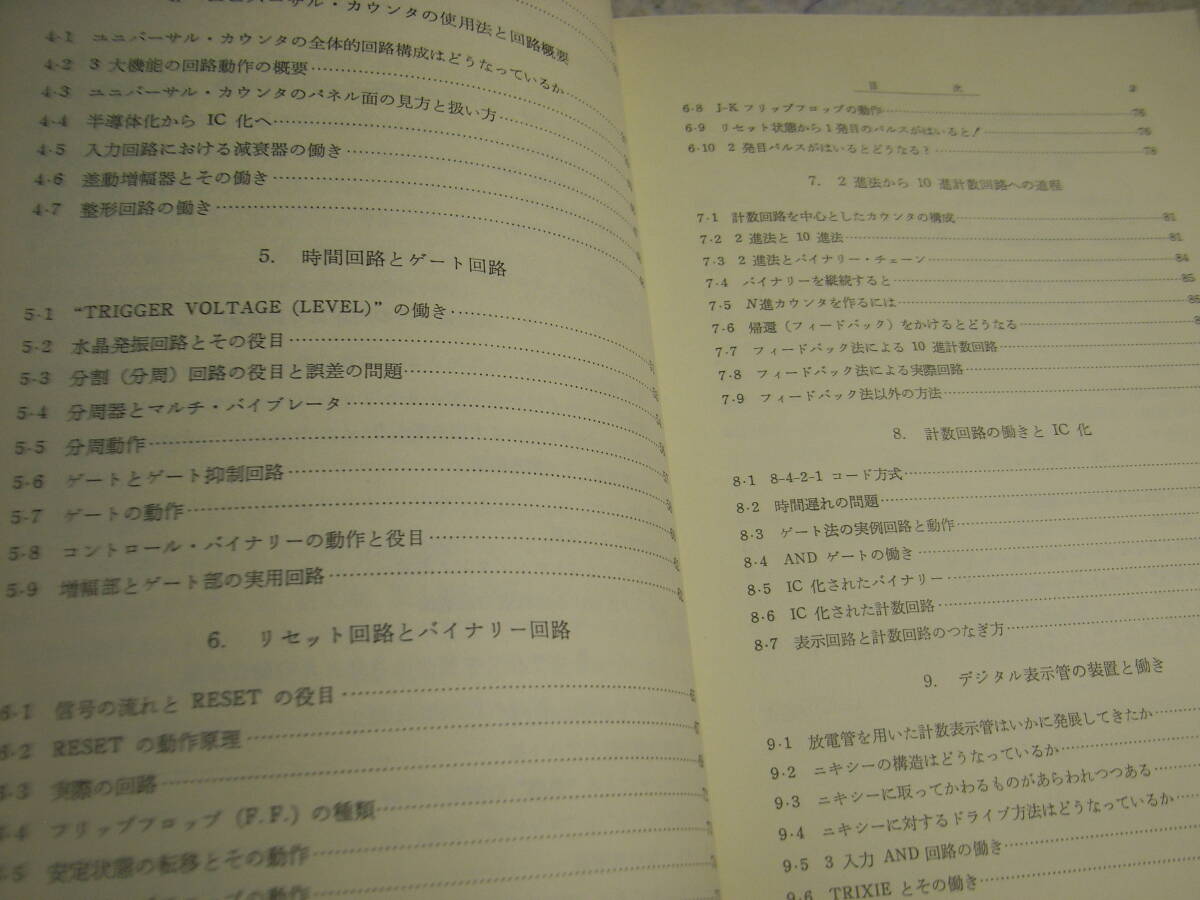 ユニバーサル・カウンタの使用法と回路概要
4·1 ユニバーサル・カウンタの全体的回路構成はどうなっているか
4·2 3 大機能の回路動作の概要
4·3 ユニバーサル・カウンタのパネル面の見方と扱い方
4·4 半導体化から IC 化へ
4·5 入力回路における減衰器の働き
4·6 差動増幅器とその働き
4·7 整形回路の働き
5. 時間回路とゲート回路
5·1 “TRIGGER VOLTAGE (LEVEL)” の働き
5·2 水晶発振回路とその役目
5·3 分割（分周）回路の役目と誤差の問題
5·4 分周器とマルチ・バイブレータ
5·5 分周動作
5·6 ゲートとゲート抑制回路
5·7 ゲートの動作
5·8 コントロール・バイナリーの動作と役目
5·9 増幅部とゲート部の実用回路
6. リセット回路とバイナリー回路
6·1 信号の流れと RESET の役目
6·2 RESET の動作原理
6·3 実際の回路
6·4 フリップフロップ (F.F.) の種類
6·5 安定状態の転移とその動作
目 次 3
6·8 J-K フリップフロップの動作 76
6·9 リセット状態から 1 発目のパルスがはいると！ 76
6·10 2 発目パルスがはいるとどうなる？ 78
7. 2 進法から 10 進計数回路への道程
7·1 計数回路を中心としたカウンタの構成 81
7·2 2 進法と 10 進法 81
7·3 2 進法とバイナリー・チェーン 84
7·4 バイナリーを縦続すると 85
7·5 N進カウンタを作るには
7·6 帰還（フィードバック）をかけるとどうなる
7·7 フィードバック法による 10 進計数回路
7·8 フィードバック法による実際回路
7·9 フィードバック法以外の方法
8. 計数回路の働きと IC 化
8·1 8-4-2-1 コード方式
8·2 時間遅れの問題
8·3 ゲート法の実例回路と動作
8·4 AND ゲートの働き
8·5 IC 化されたバイナリー
8·6 IC 化された計数回路
8·7 表示回路と計数回路のつなぎ方
9. デジタル表示管の装置と働き
9·1 放電管を用いた計数表示管はいかに発展してきたか
9·2 ニキシーの構造はどうなっているか
9·3 ニキシーに取ってかわるものがあらわれつつある
9·4 ニキシーに対するドライブ方法はどうなっているか
9·5 3 入力 AND 回路の働き
9·6 TRIXIE とその働き